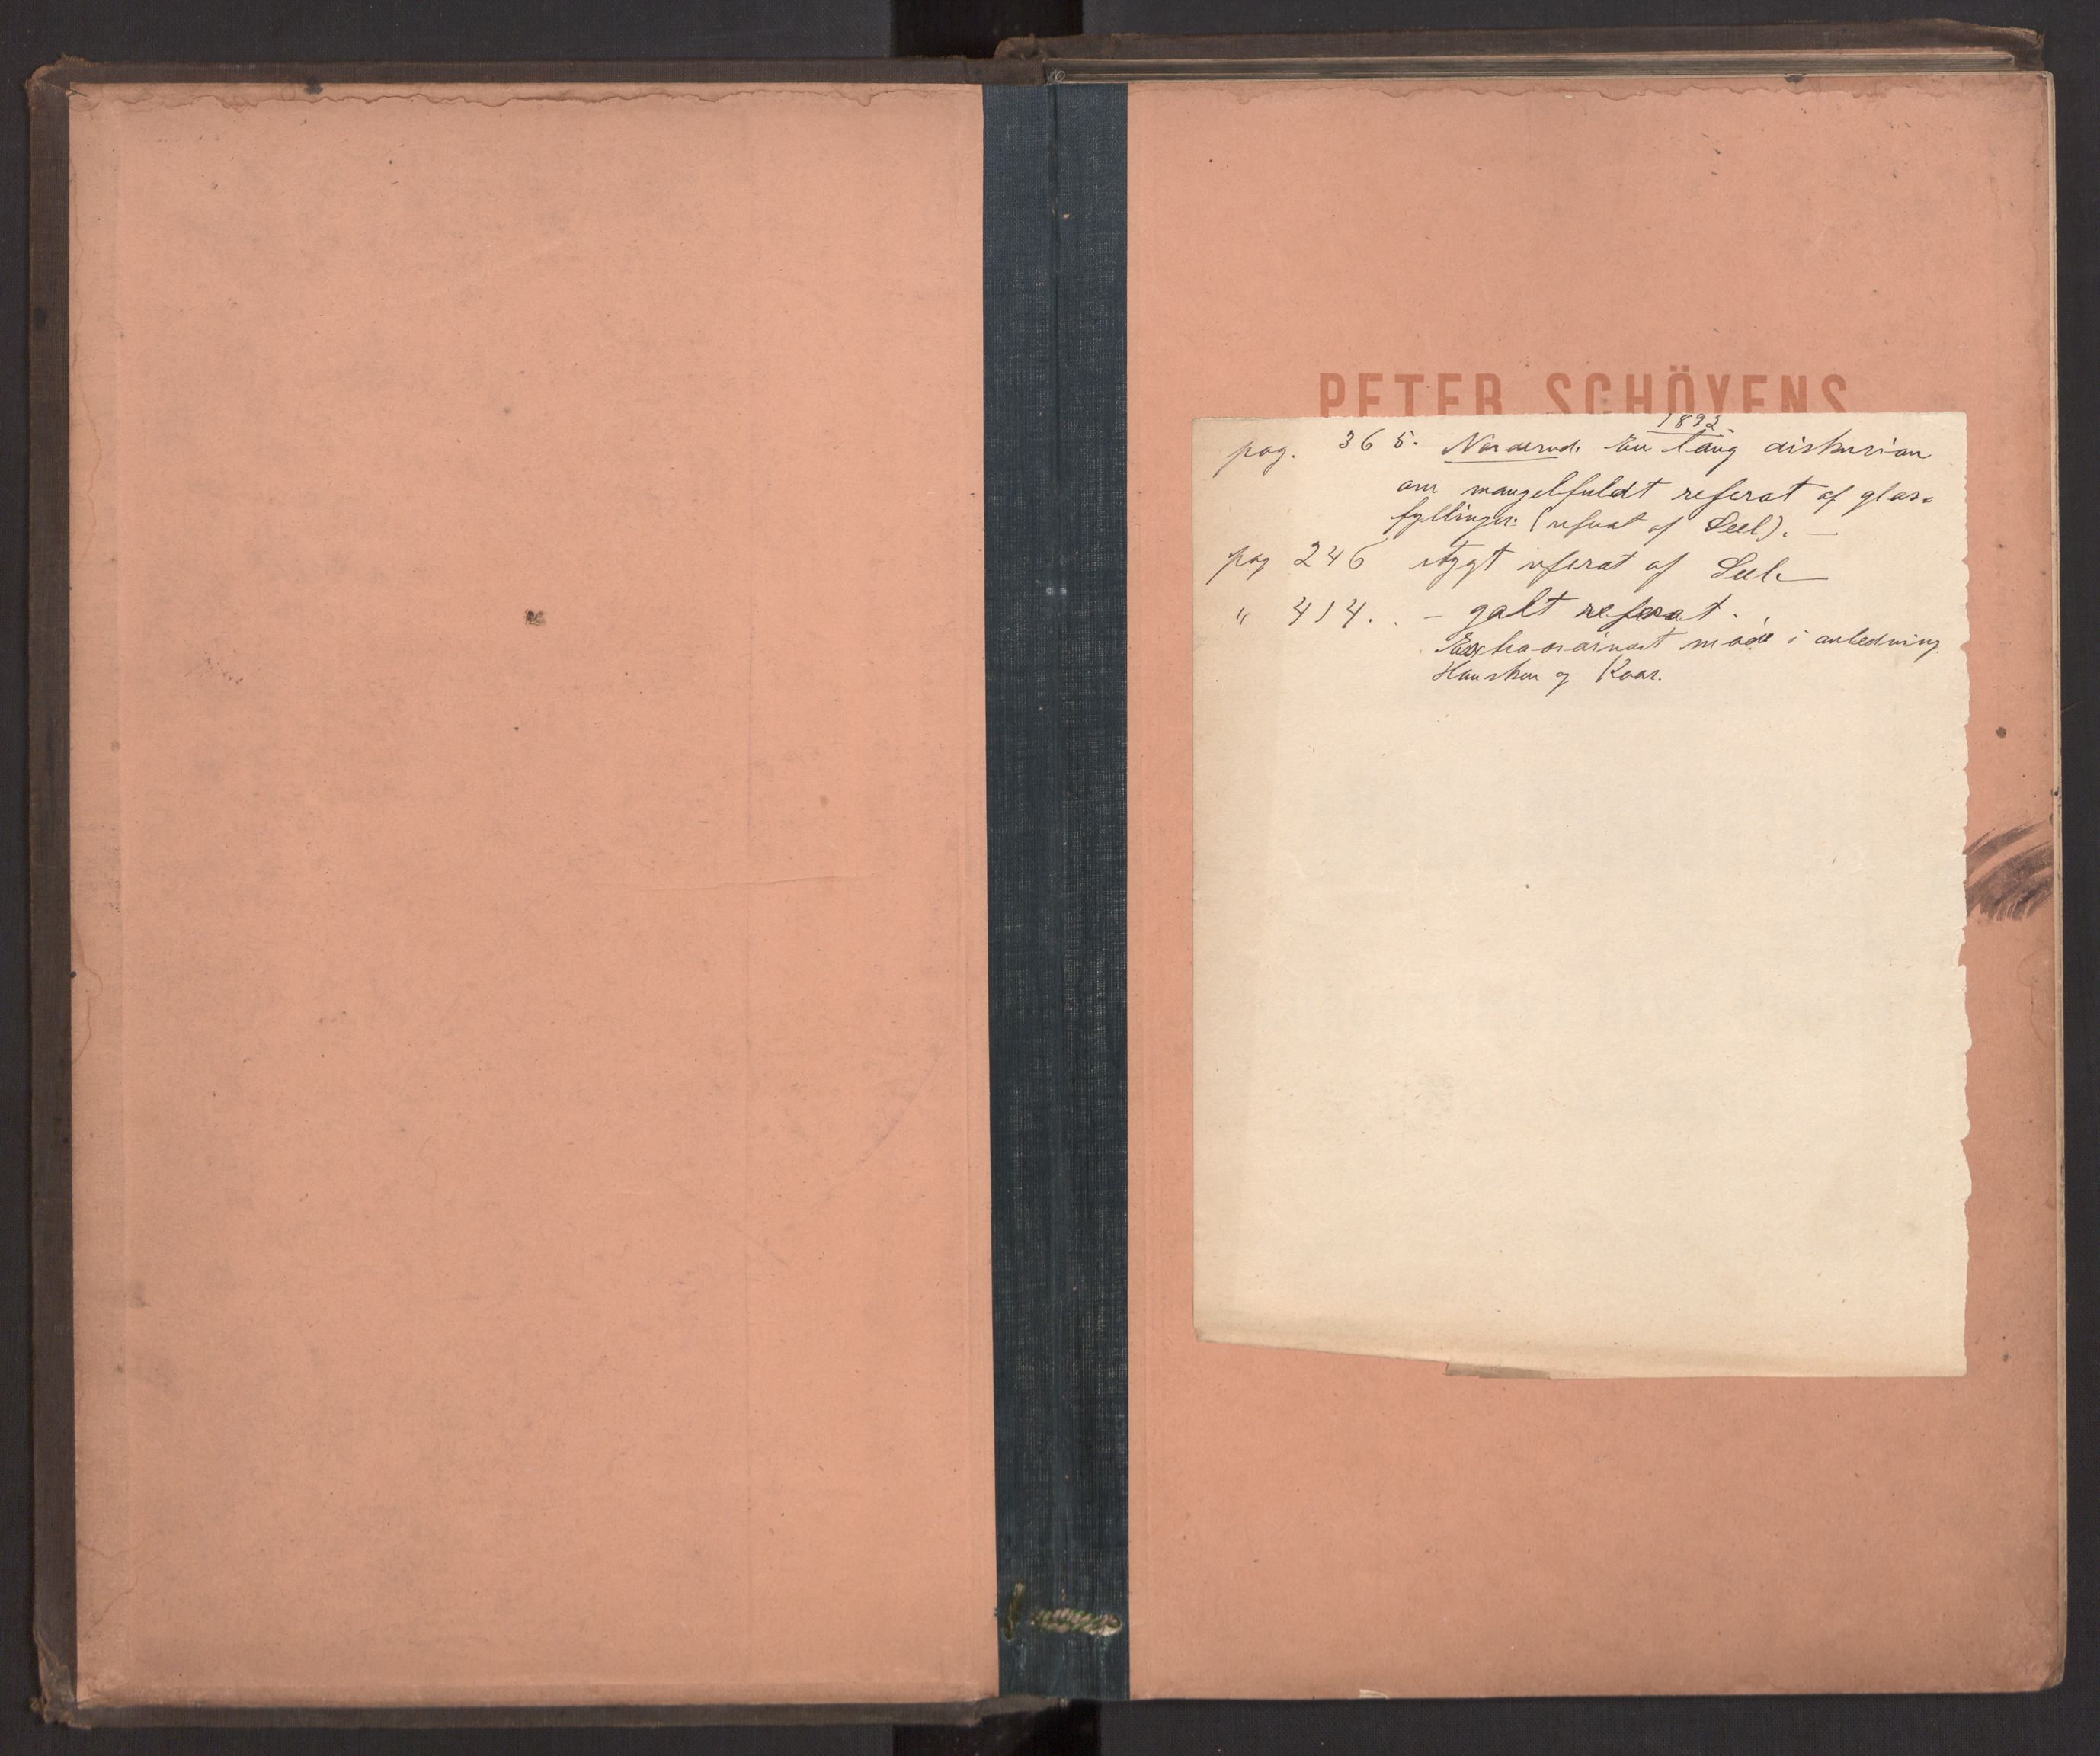 PETER SCHÖYENS
1892
pag. 365. Norderud. En lang diskusion
om mangelfuldt referat af glas-
fyllinger. (referat af Seel). —
pag 246 stygt referat af Seel —
" 414. . — galt referat.
Extraordinært møde i anledning
Hansken og Roar.